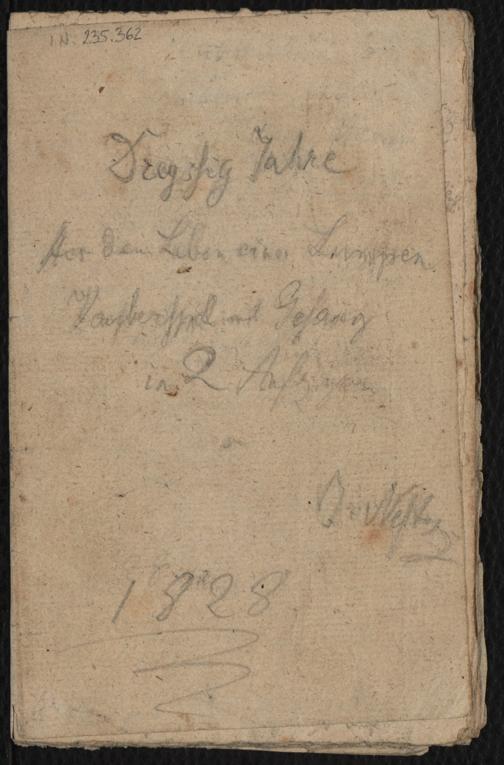 IN. 235.362
Dreyssig Jahre
Aus dem Leben eines Lumpen
Zauberspiel mit Gesang
in 2 Aufzügen
Nestroy
1828